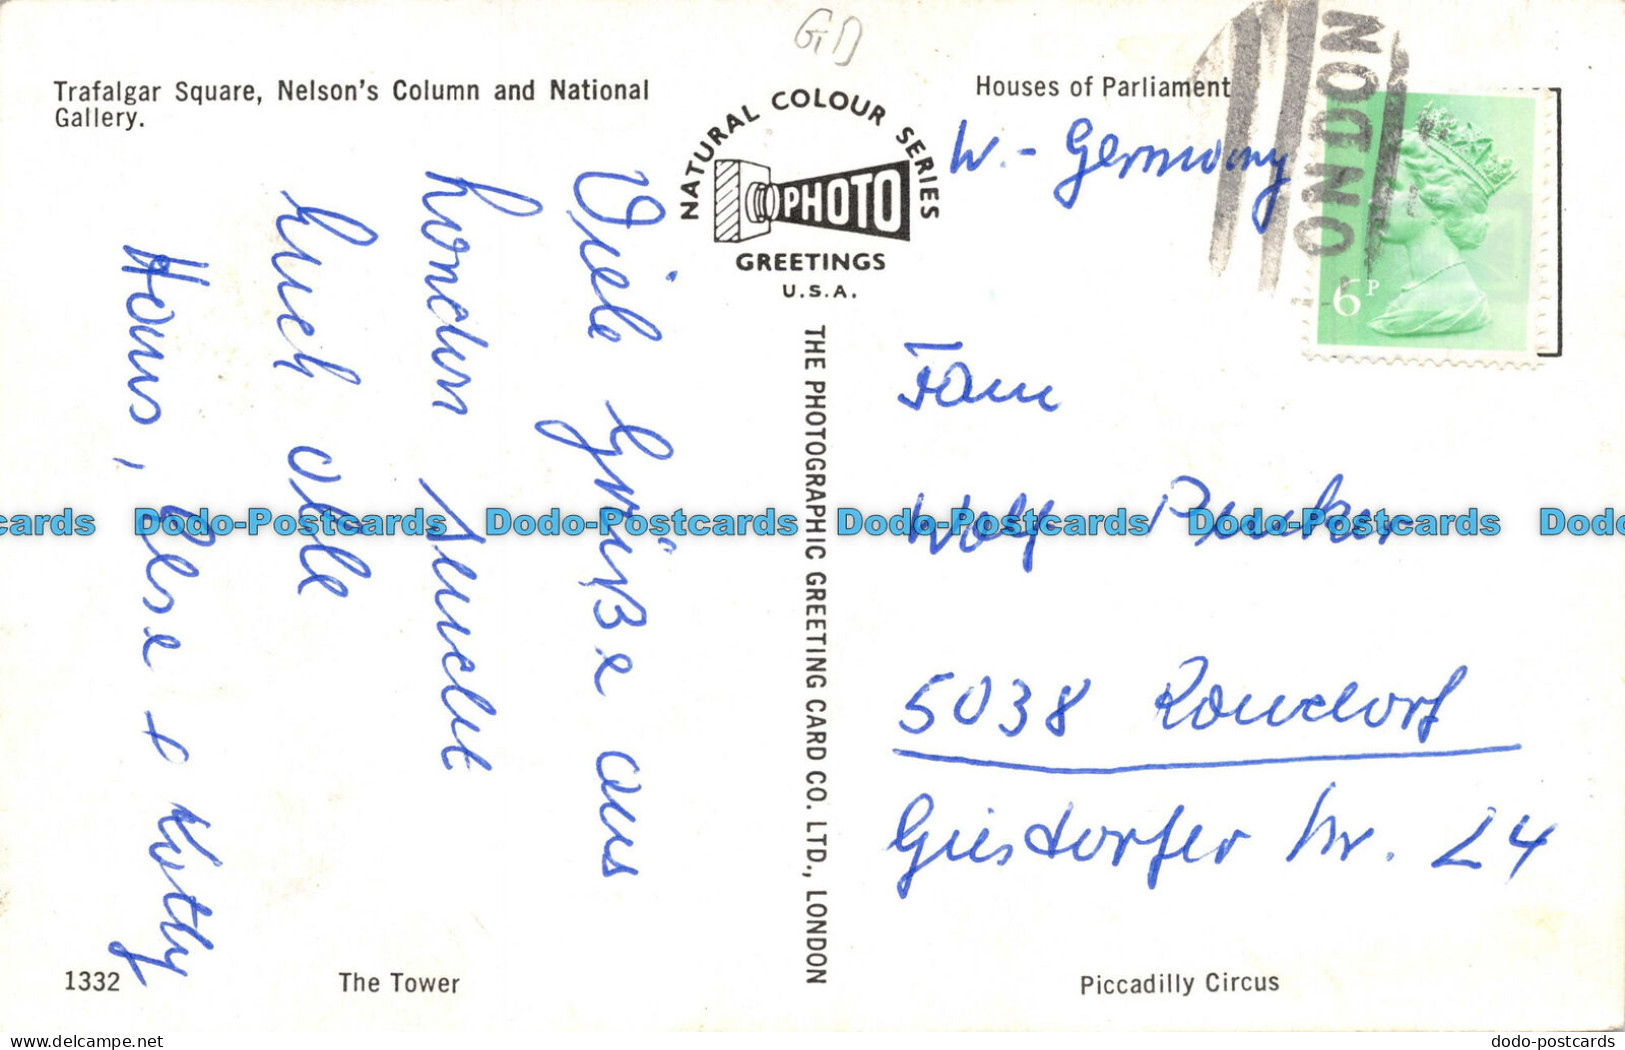 GD
Trafalgar Square, Nelson's Column and National
Gallery.
Houses of Parliament
NATURAL COLOUR SERIES
PHOTO
GREETINGS
U.S.A.
LONDON
6P
W.-Germany
Viele Grüße aus
London sendet
Euch alle
Hans, Resa &
THE PHOTOGRAPHIC GREETING CARD CO. LTD., LONDON
Fam
Wolf
5038 Rondorf
Giesdorfer Str. 24
1332
The Tower
Piccadilly Circus
Dodo-Postcards Dodo-Postcards Dodo-Postcards Dodo-Postcards Dodo
hipstamp.com
dodo-postcards.com